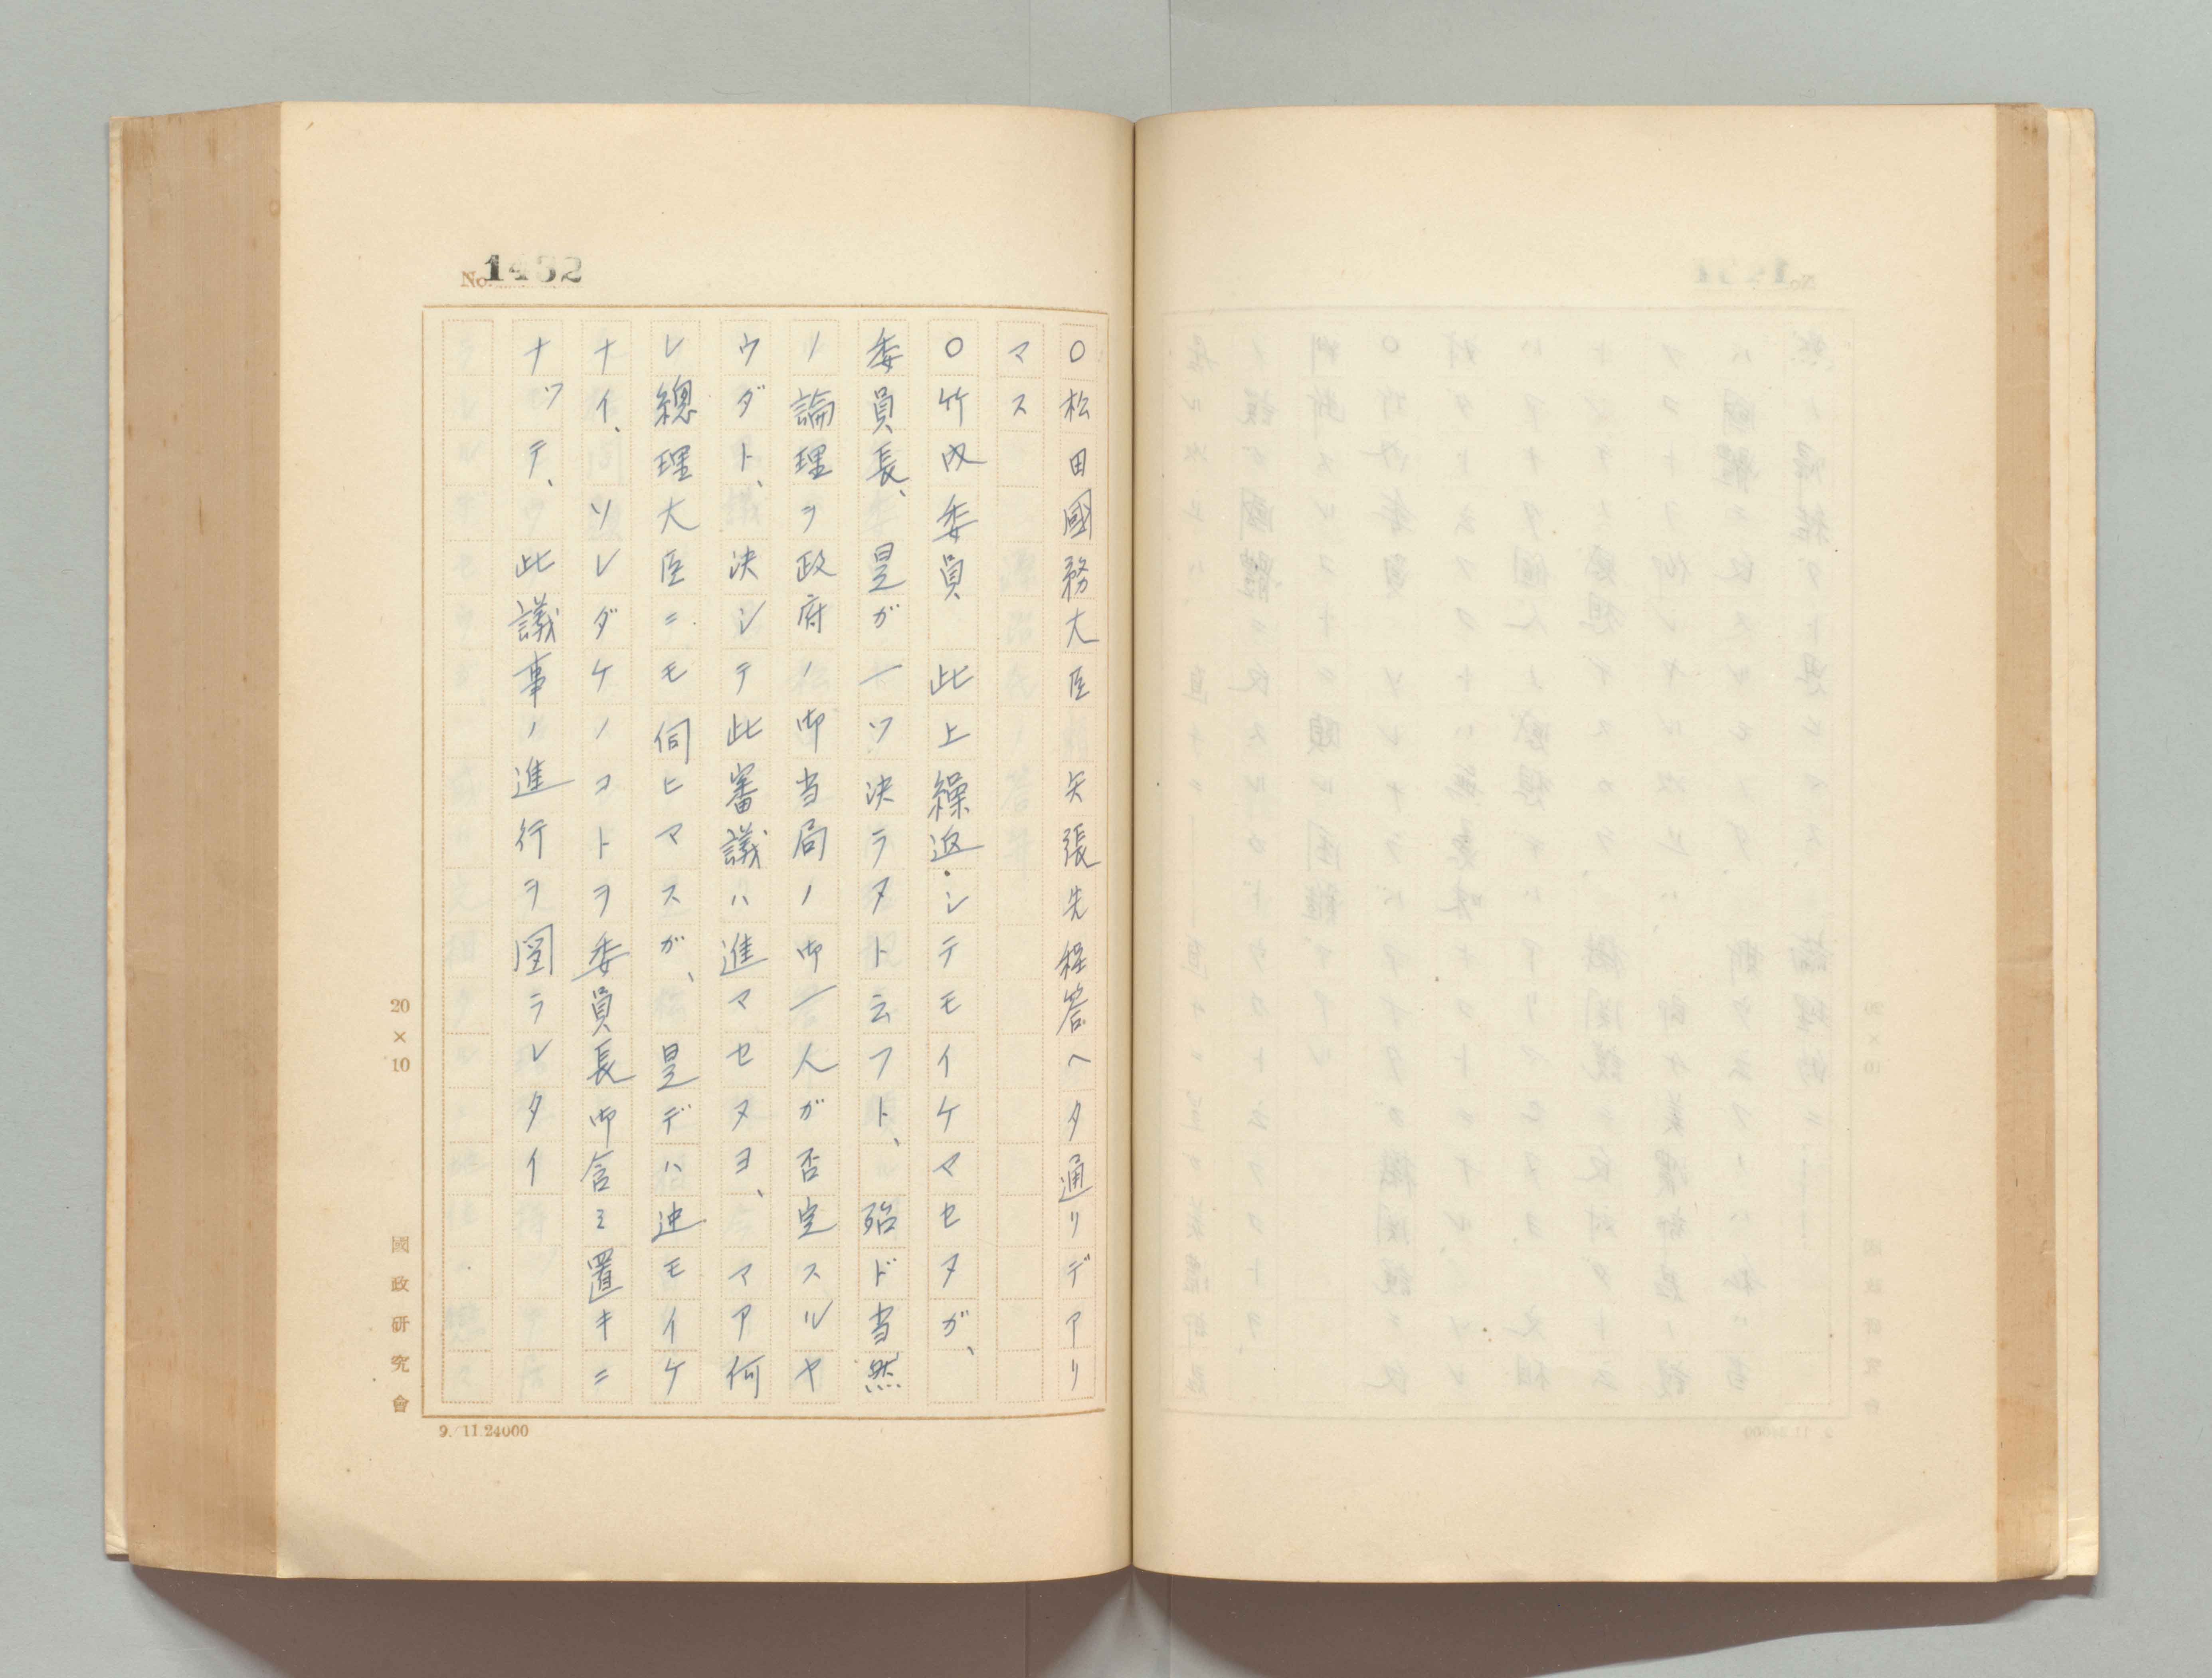 No. 1432
○松田國務大臣　矢張先程答ヘタ通リデアリ
マス
○竹内委員　此上繰返シテモイケマセヌガ、
委員長、是ガ一ツ決ラヌト云フト、殆ド当然
ノ論理ヲ政府ノ御当局ノ御一人ガ否定スルヤ
ウダト、決シテ此審議ハ進マセヌヨ、マア何
レ總理大臣ニモ伺ヒマスガ、是デハ迚モイケ
ナイ、ソレダケノコトヲ委員長御含ミ置キニ
ナッテ、此議事ノ進行ヲ圖ラレタイ
20×10
國政研究會
9. 11.24000